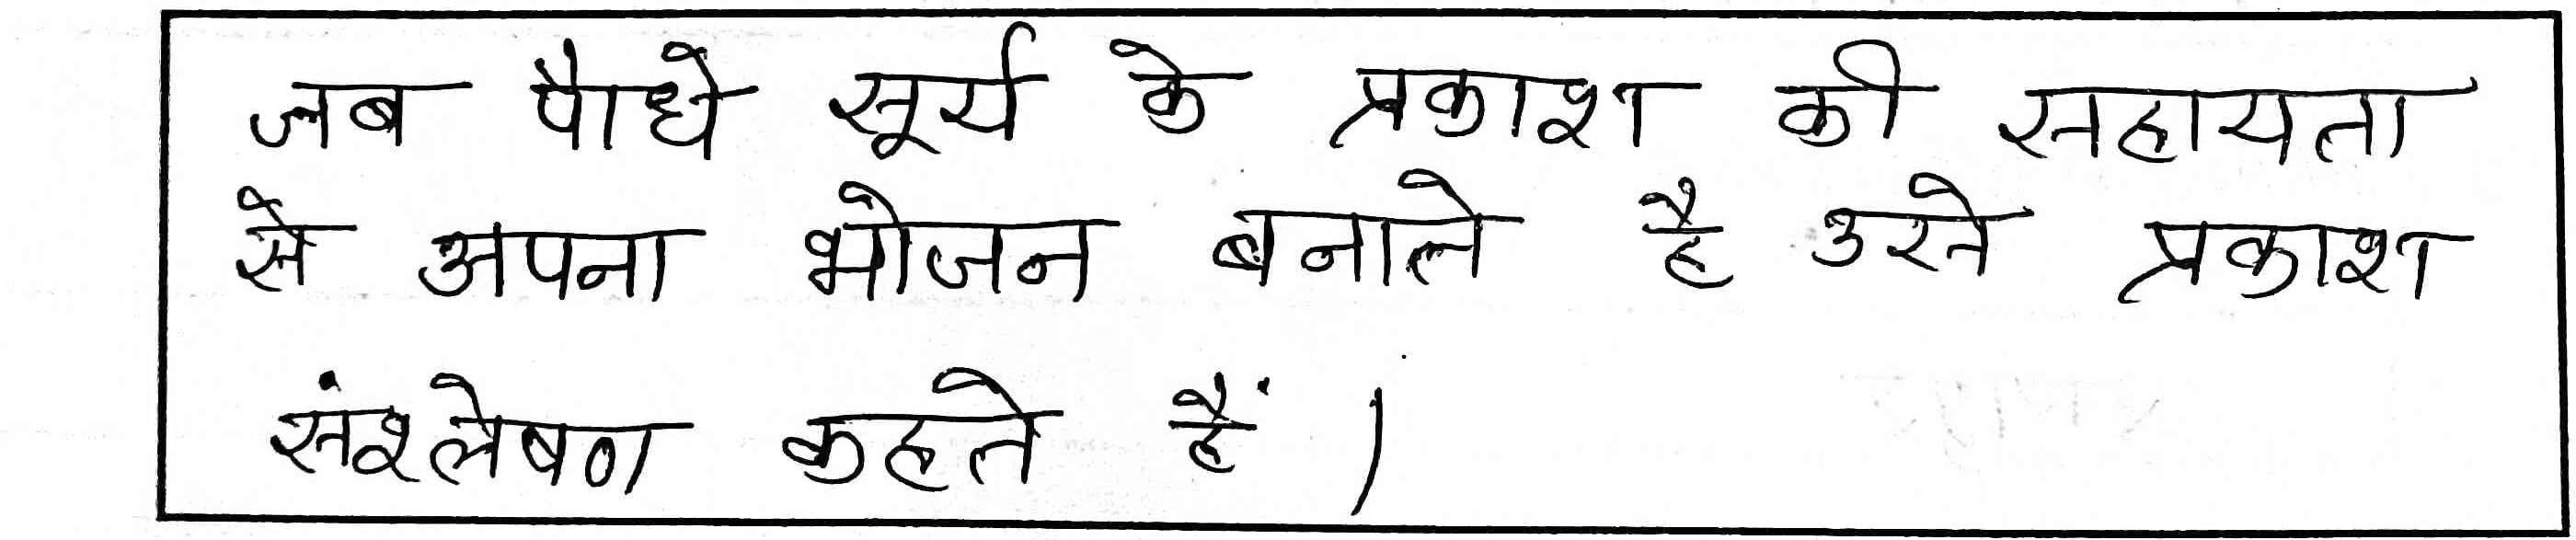 जब पौधे सूर्य के प्रकाश की सहायता
से अपना भोजन बनाते है उसे प्रकाश
संश्लेषण कहते हैं ।